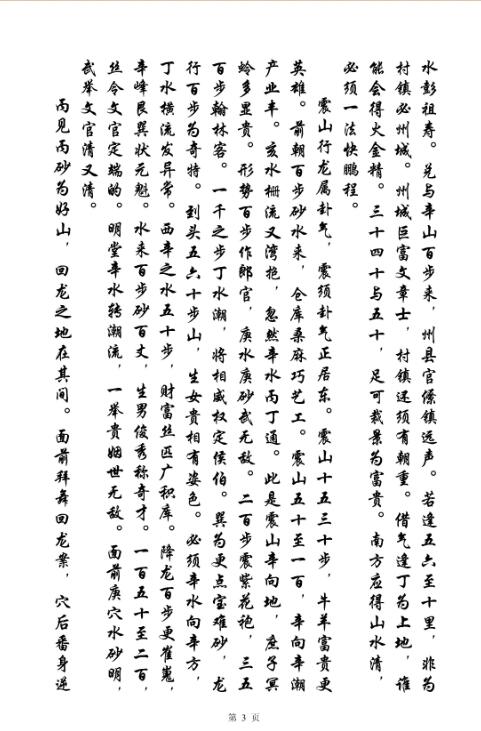 水彭祖寿。兑与辛山百步来，州县官僚镇远声。若逢五六至十里，非为
村镇必州城。州城巨富文章士，村镇还须有朝重。借气逢丁为上地，谁
能会得火金精。三十四十与五十，足可裁景为富贵。南方应得山水清，
必须一法快鹏程。
震山行龙属卦气，震须卦气正居东。震山十五三十步，牛羊富贵更
英雄。前朝百步砂水来，仓库桑麻巧艺工。震山五十至一百，辛向辛潮
产业丰。亥水栅流又湾抱，忽然辛水丙丁通。此是震山辛向地，庶子冥
蛉多显贵。形势百步作郎官，庚水庚砂武无敌。二百步震紫花袍，三五
百步翰林客。一千之步丁水潮，将相威权定侯伯。巽为更点宝雄砂，龙
行百步为奇特。到头五六十步山，生女贵相有姿色。必须辛水向辛方，
丁水横流发异常。酉辛之水五十步，财富丝匹广积库。降龙百步更崔嵬，
辛峰艮巽状元魁。水来百步砂百丈，生男俊秀称奇才。一百五十至二百，
丝令文官定端的。明堂辛水转潮流，一举贵姻世无敌。面前庚穴水砂明，
武举文官清又清。
丙见丙砂为好山，回龙之地在其间。面前拜舞回龙案，穴后番身逆
第 3 页